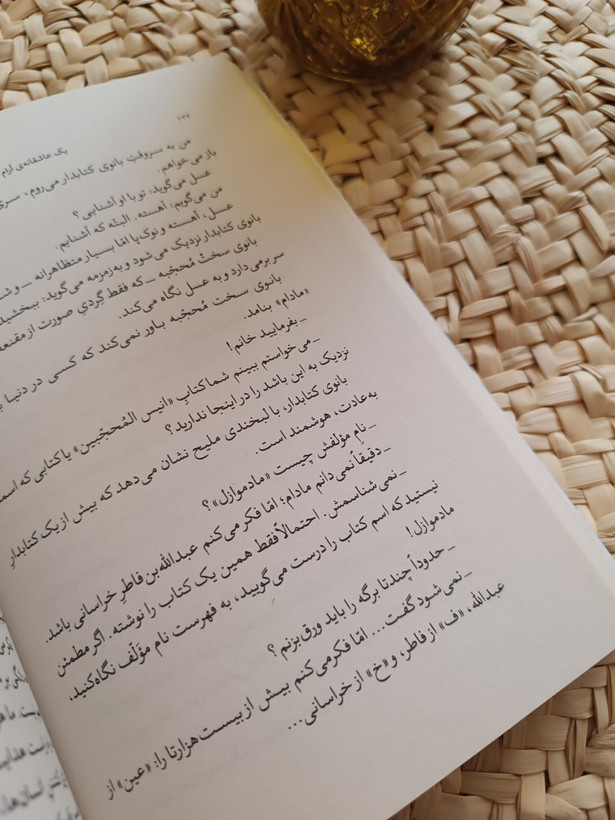 ۱۲۲
یک عاشقانه‌ی آرام
من به سروقتِ بانوی کتابدار می‌روم،
باز می‌خواهم.
عسل می‌گوید: تو با او آشنایی؟
من می‌گویم: آهسته. البتّه که آشنایم.
عسل، آهسته و نوک‌پا امّا بسیار متظاهرانه ــ و
بانوی کتابدار نزدیک می‌شود و به زمزمه می‌گوید: ببخشید
بانوی سختْ مُحجّبه ــ که فقط گِردیِ صورت از مقنعه
سر برمی‌دارد و به عسل نگاه می‌کند.
بانوی سخت مُحجّبه باور نمی‌کند که کسی در دنیا
«مادام» بنامد.
ــ بفرمایید خانم!
ــ می‌خواستم ببینم شما کتابِ «انیس المُحجّبین» یا کتابی که اسمش
نزدیک به این باشد را در اینجا ندارید؟
بانوی کتابدار، با لبخندی ملیح نشان می‌دهد که بیش از یک کتابدارِ
به‌عادت، هوشمند است.
ــ نامِ مؤلفش چیست «مادموازل»؟
ــ دقیقاً نمی‌دانم مادام؛ امّا فکر می‌کنم عبدالله‌بن فاطرِ خراسانی باشد.
ــ نمی‌شناسمش. احتمالاً فقط همین یک کتاب را نوشته. اگر مطمئن
نیستید که اسم کتاب را درست می‌گویید، به فهرست نام مؤلّف نگاه کنید،
مادموازل!
ــ حدوداً چندتا برگه را باید ورق بزنم؟
ــ نمی‌شود گفت... امّا فکر می‌کنم بیش از بیست‌هزارتا را: «عین» از
عبدالله، «ف» از فاطر، و «خ» از خراسانی...